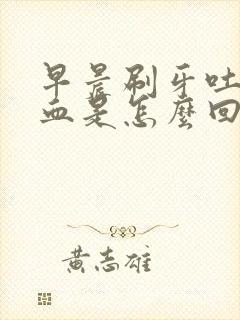 早晨刷牙吐
血是怎麼回
黃志雄